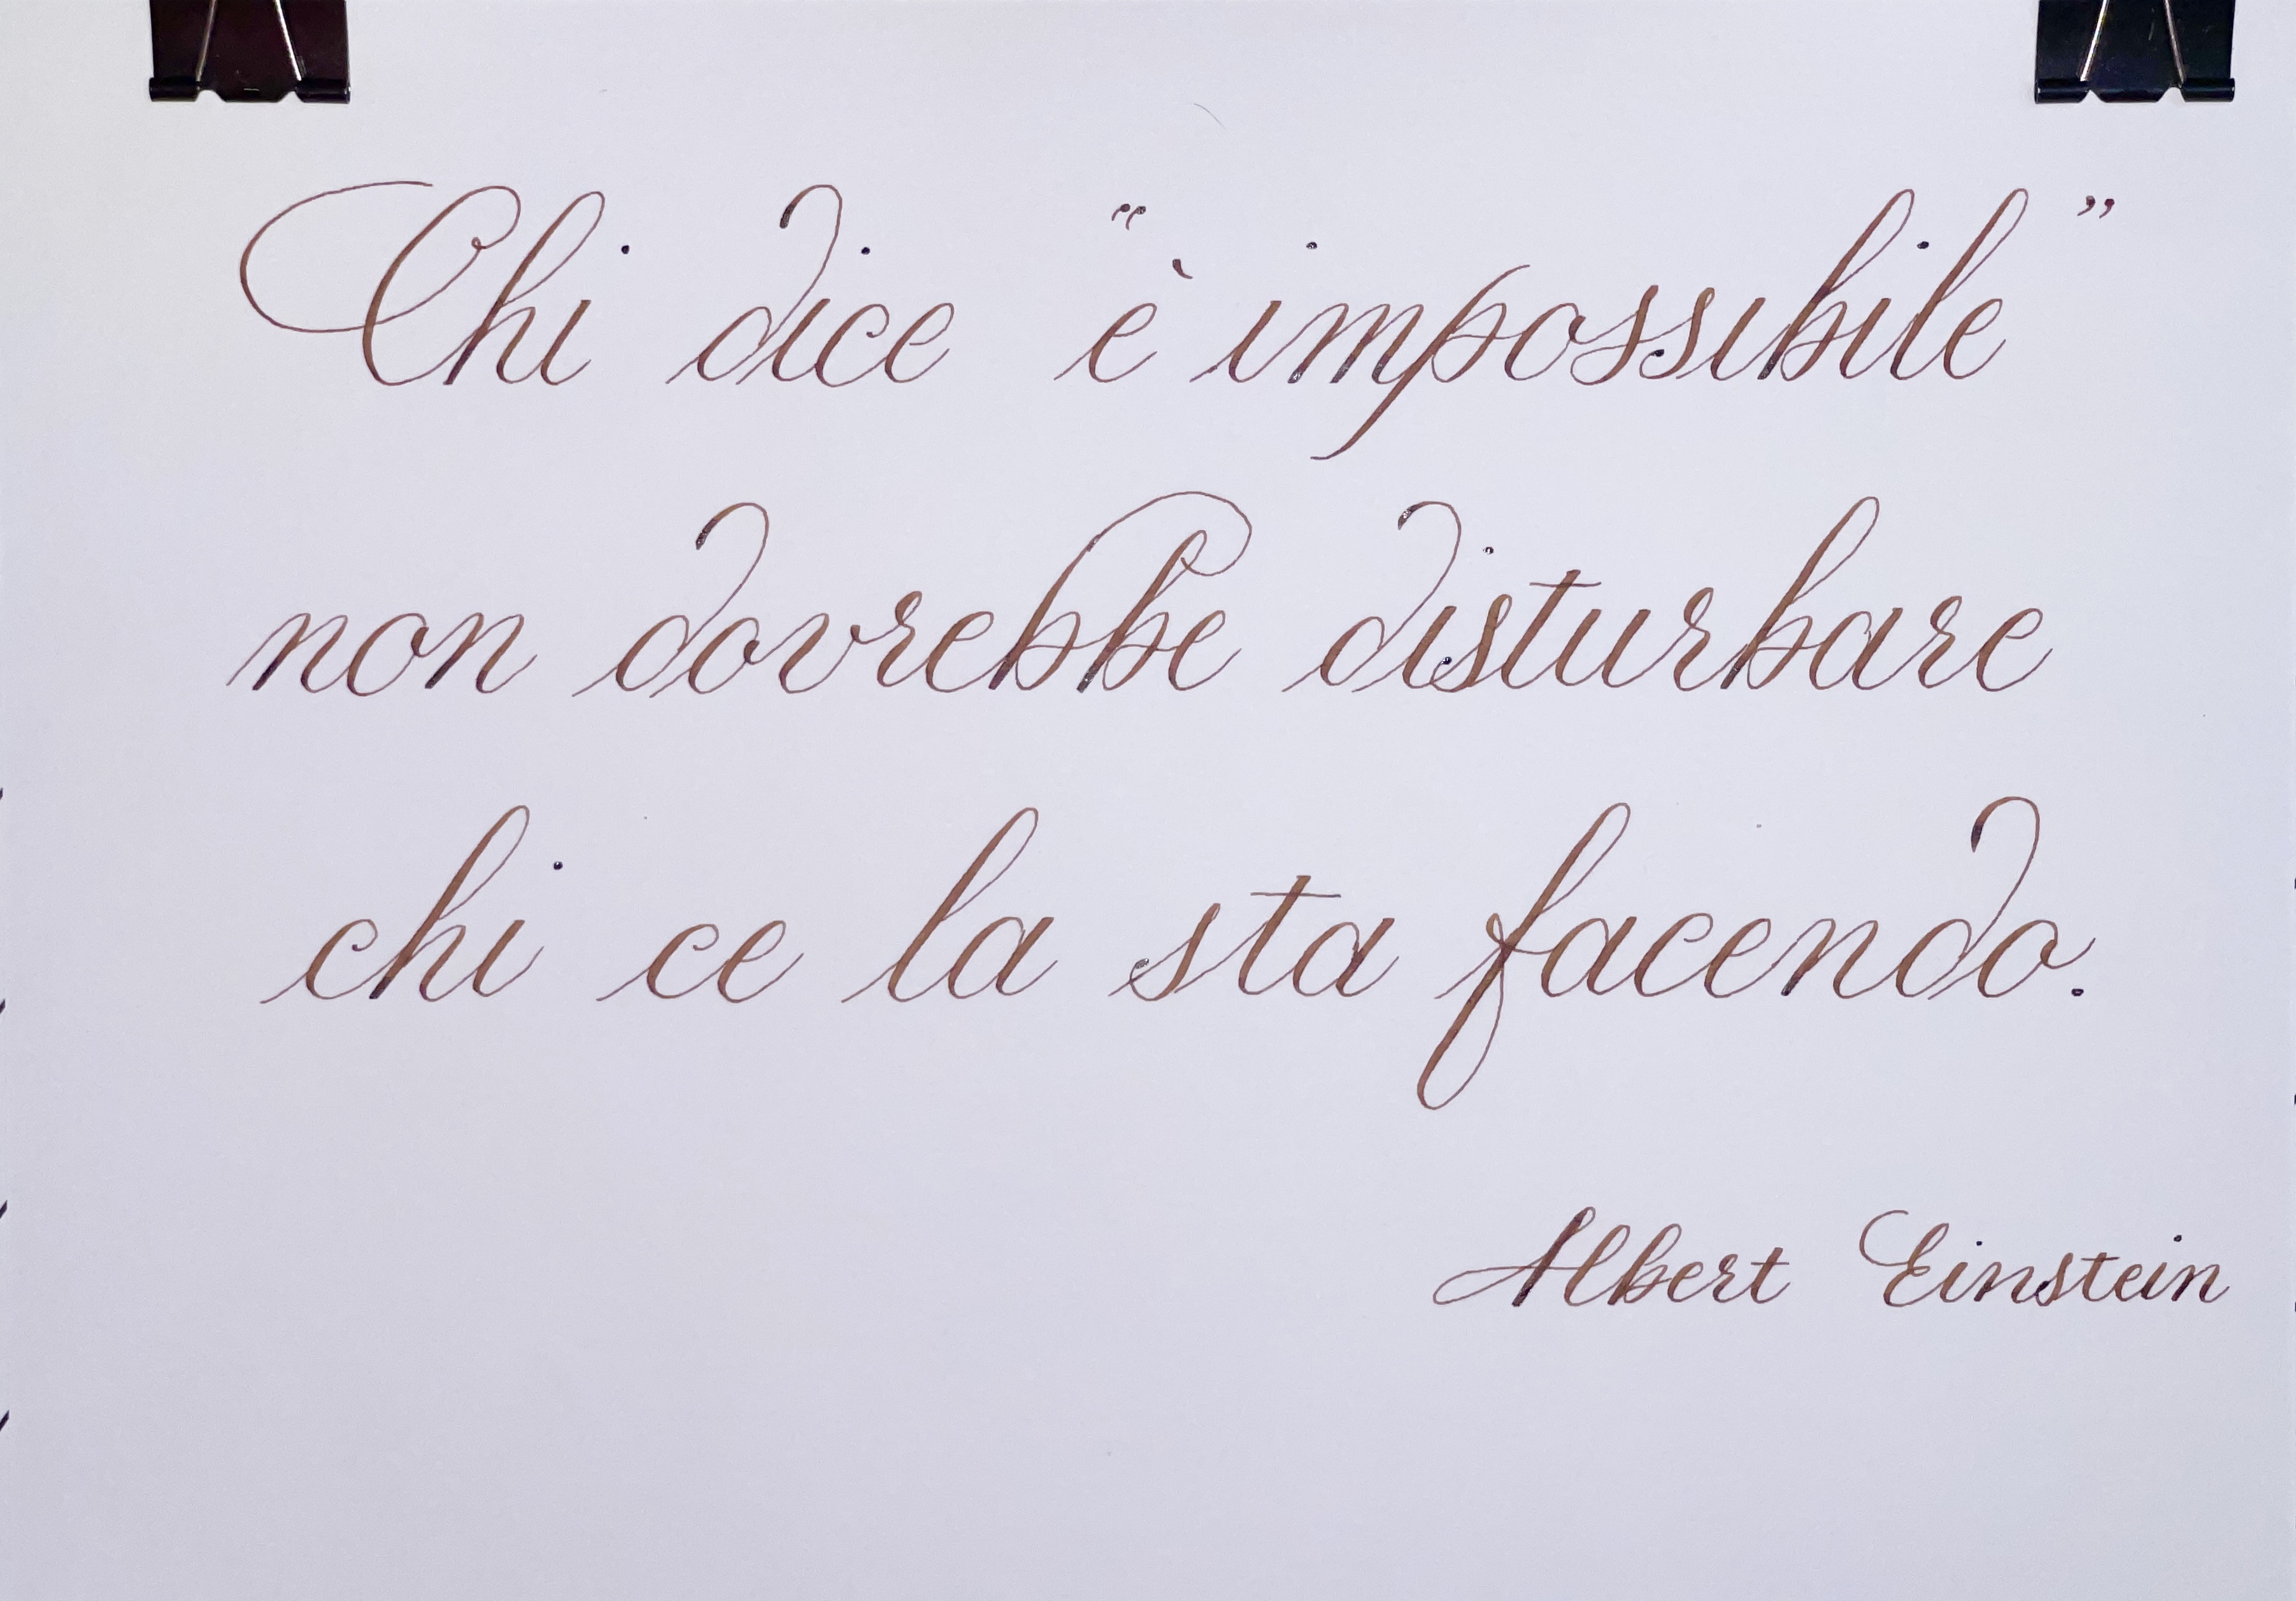 Chi dice “è impossibile”
non dovrebbe disturbare
chi ce la sta facendo.
Albert Einstein